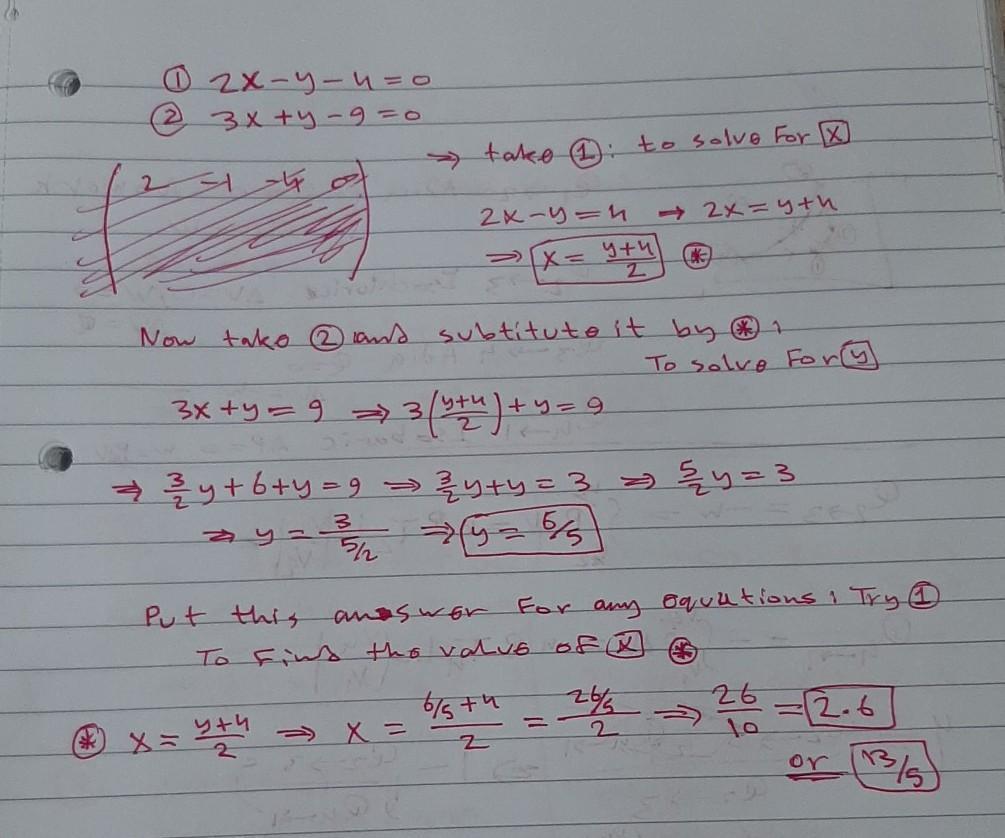 ① 2x-y-4=0
② 3x+y-9=0
2 -1 -4 0
→ take ①: to solve For x
2x-y=4 → 2x=y+4
⇒ x= (y+4)/2 *
Now take ② and subtitute it by *,
To solve For y
3x+y=9 ⇒ 3((y+4)/2)+y=9
⇒ 3/2 y+6+y=9 ⇒ 3/2 y+y=3 ⇒ 5/2 y=3
⇒ y=3/(5/2) ⇒ y=6/5
Put this answer For any equations, Try ①
To Find the value of x *
* x=(y+4)/2 ⇒ x=(6/5+4)/2 = (26/5)/2 ⇒ 26/10 = 2.6
or 13/5